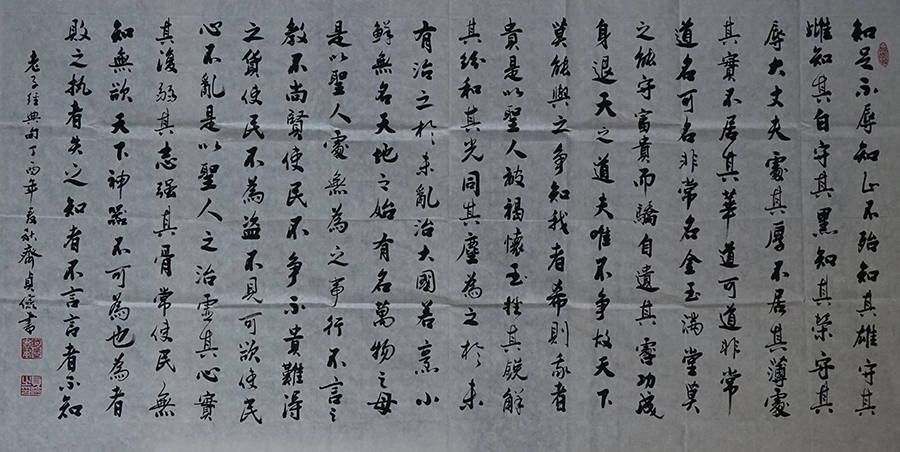 知足不辱知止不殆知其雄守其
雌知其白守其黑知其榮守其
辱大丈夫處其厚不居其薄處
其實不居其華道可道非常
道名可名非常名金玉滿堂莫
之能守富貴而驕自遺其咎功成
身退天之道夫唯不爭故天下
莫能與之爭知我者希則我者
貴是以聖人被褐懷玉挫其銳解
其紛和其光同其塵為之於未
有治之於未亂治大國若烹小
鮮無名天地之始有名萬物之母
是以聖人處無為之事行不言之
教不尚賢使民不爭不貴難得
之貨使民不為盜不見可欲使民
心不亂是以聖人之治虛其心實
其腹弱其志強其骨常使民無
知無欲天下神器不可為也為者
敗之執者失之知者不言言者不知
老子經典句丁酉年春秋齋貞儒書